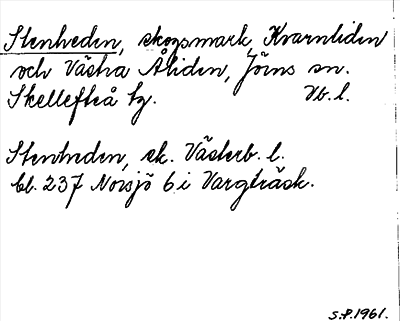 Stenheden, skogsmark, Kvarnliden
och Västra Åliden, Jörns sn.
Skellefteå tg. Vb. l.
Stenheden, ek. Västerb. l.
bl. 237 Norsjö 6 i Vargträsk.
S.P. 1961.